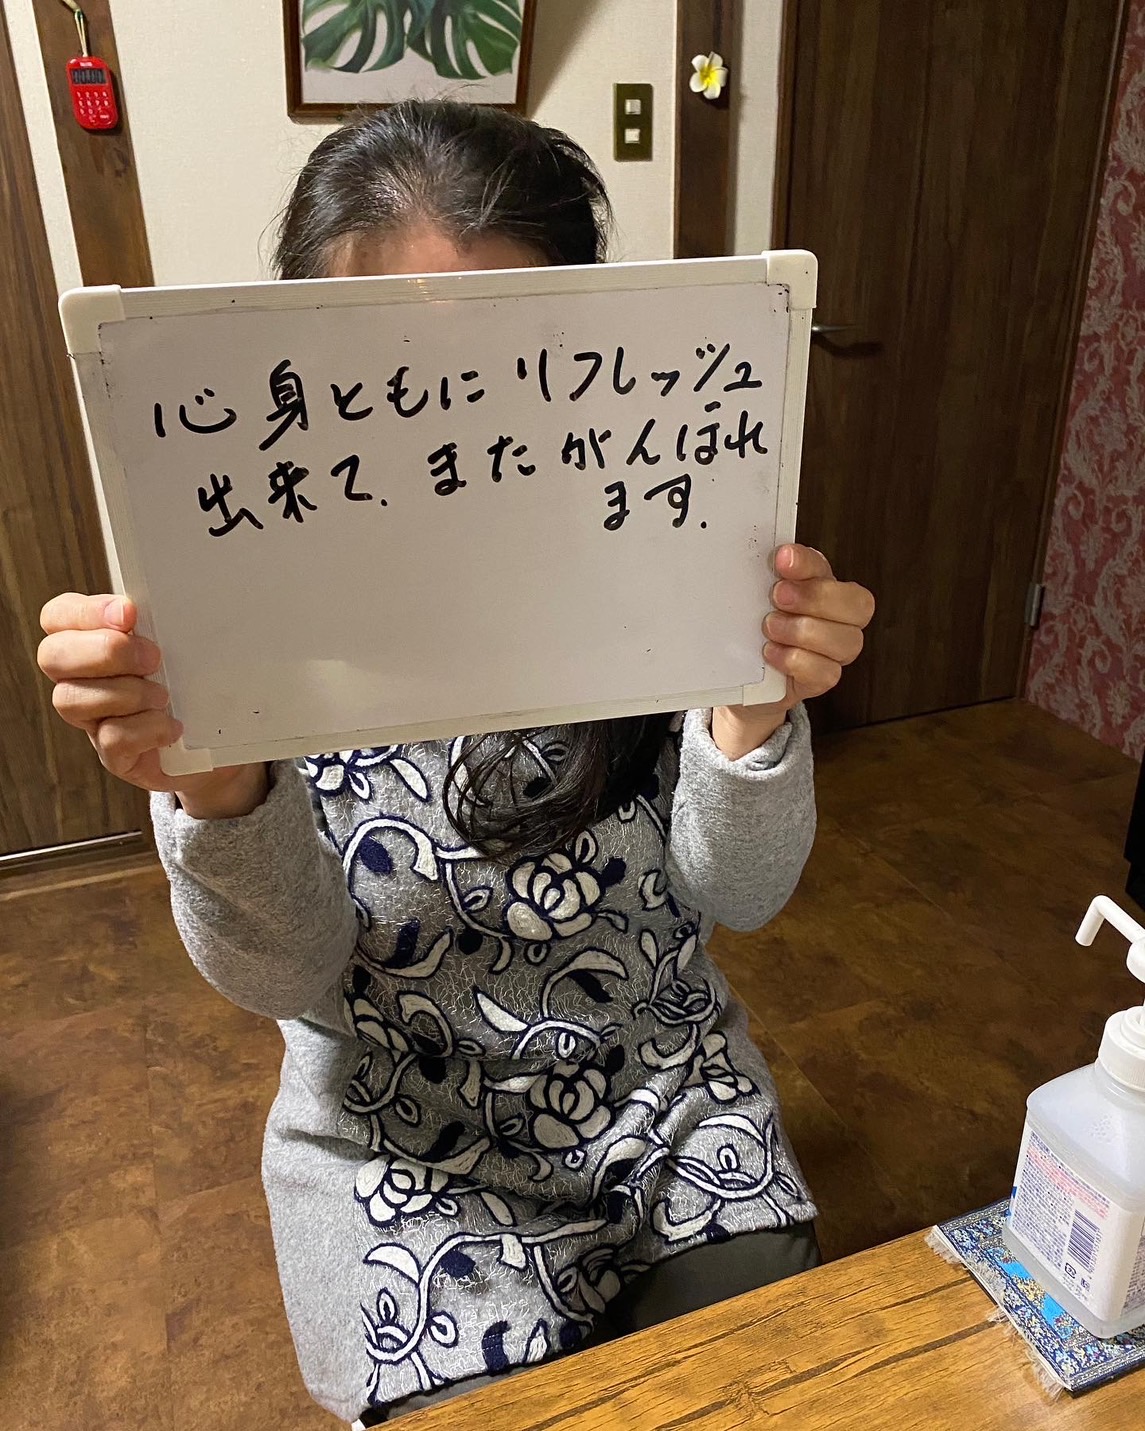 心身ともにリフレッシュ
出来て、またがんばれ
ます。